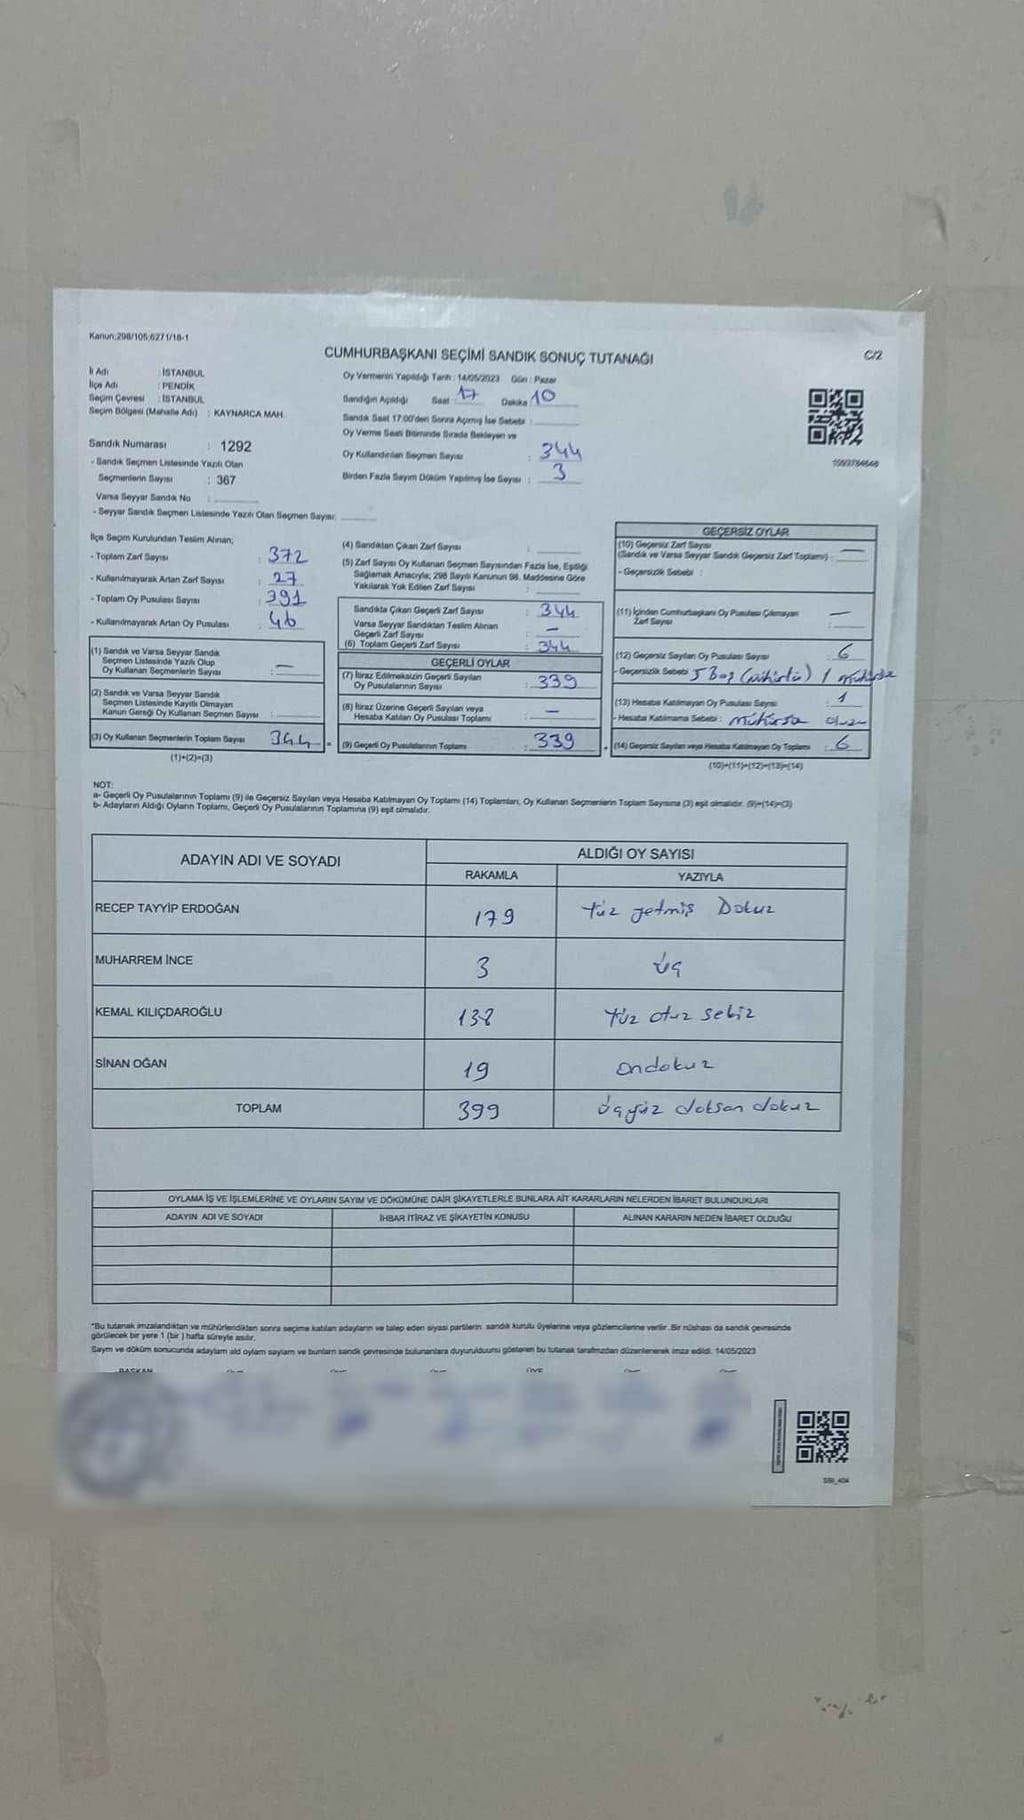 Kanun:298/105;6271/18-1
CUMHURBAŞKANI SEÇİMİ SANDIK SONUÇ TUTANAĞI
C/2
İl Adı : İSTANBUL
İlçe Adı : PENDİK
Seçim Çevresi : İSTANBUL
Seçim Bölgesi (Mahalle Adı) : KAYNARCA MAH.
Sandık Numarası : 1292
- Sandık Seçmen Listesinde Yazılı Olan
Seçmenlerin Sayısı : 367
Varsa Seyyar Sandık No :
- Seyyar Sandık Seçmen Listesinde Yazılı Olan Seçmen Sayısı:
Oy Vermenin Yapıldığı Tarih : 14/05/2023 Gün : Pazar
Sandığın Açıldığı Saat 17 Dakika 10
Sandık Saat 17:00'den Sonra Açılmış İse Sebebi :
Oy Verme Saati Bitiminde Sırada Bekleyen ve
Oy Kullandırılan Seçmen Sayısı : 344
Birden Fazla Sayım Döküm Yapılmış İse Sayısı : 3
1093784646
İlçe Seçim Kurulundan Teslim Alınan;
- Toplam Zarf Sayısı : 372
- Kullanılmayarak Artan Zarf Sayısı : 27
- Toplam Oy Pusulası Sayısı : 391
- Kullanılmayarak Artan Oy Pusulası : 46
(1) Sandık ve Varsa Seyyar Sandık
Seçmen Listesinde Yazılı Olup
Oy Kullanan Seçmenlerin Sayısı : —
(2) Sandık ve Varsa Seyyar Sandık
Seçmen Listesinde Kayıtlı Olmayan
Kanun Gereği Oy Kullanan Seçmen Sayısı :
(3) Oy Kullanan Seçmenlerin Toplam Sayısı 344
(1)+(2)=(3)
(4) Sandıktan Çıkan Zarf Sayısı :
(5) Zarf Sayısı Oy Kullanan Seçmen Sayısından Fazla İse, Eşitliği
Sağlamak Amacıyla; 298 Sayılı Kanunun 98. Maddesine Göre
Yakılarak Yok Edilen Zarf Sayısı :
Sandıkta Çıkan Geçerli Zarf Sayısı : 344
Varsa Seyyar Sandıktan Teslim Alınan
Geçerli Zarf Sayısı : —
(6) Toplam Geçerli Zarf Sayısı : 344
GEÇERLİ OYLAR
(7) İtiraz Edilmeksizin Geçerli Sayılan
Oy Pusulalarının Sayısı : 339
(8) İtiraz Üzerine Geçerli Sayılan veya
Hesaba Katılan Oy Pusulası Toplamı : —
(9) Geçerli Oy Pusulalarının Toplamı : 339
GEÇERSİZ OYLAR
(10) Geçersiz Zarf Sayısı
(Sandık ve Varsa Seyyar Sandık Geçersiz Zarf Toplamı) : —
- Geçersizlik Sebebi :
(11) İçinden Cumhurbaşkanı Oy Pusulası Çıkmayan
Zarf Sayısı : —
(12) Geçersiz Sayılan Oy Pusulası Sayısı : 6
- Geçersizlik Sebebi : 5 Boş 1
(13) Hesaba Katılmayan Oy Pusulası Sayısı : 1
- Hesaba Katılmama Sebebi :
(14) Geçersiz Sayılan veya Hesaba Katılmayan Oy Toplamı : 6
(10)+(11)+(12)+(13)=(14)
NOT:
a- Geçerli Oy Pusulalarının Toplamı (9) ile Geçersiz Sayılan veya Hesaba Katılmayan Oy Toplamı (14) Toplamları, Oy Kullanan Seçmenlerin Toplam Sayısına (3) eşit olmalıdır. (9)+(14)=(3)
b- Adayların Aldığı Oyların Toplamı, Geçerli Oy Pusulalarının Toplamına (9) eşit olmalıdır.
ADAYIN ADI VE SOYADI
ALDIĞI OY SAYISI
RAKAMLA YAZIYLA
RECEP TAYYİP ERDOĞAN 179 Yüz yetmiş Dokuz
MUHARREM İNCE 3 üç
KEMAL KILIÇDAROĞLU 138 Yüz otuz sekiz
SİNAN OĞAN 19 ondokuz
TOPLAM 399 üçyüz doksan dokuz
OYLAMA İŞ VE İŞLEMLERİNE VE OYLARIN SAYIM VE DÖKÜMÜNE DAİR ŞİKAYETLERLE BUNLARA AİT KARARLARIN NELERDEN İBARET BULUNDUKLARI
ADAYIN ADI VE SOYADI İHBAR İTİRAZ VE ŞİKAYETİN KONUSU ALINAN KARARIN NEDEN İBARET OLDUĞU
*Bu tutanak imzalandıktan ve mühürlendikten sonra seçime katılan adayların ve talep eden siyasi partilerin sandık kurulu üyelerine veya gözlemcilerine verilir. Bir nüshası da sandık çevresinde
görülecek bir yere 1 (bir ) hafta süreyle asılır.
Sayım ve döküm sonucunda adayların aldı oyların sayıların ve bunların sandık çevresinde bulunanlara duyurulduunu gösteren bu tutanak tarafımızdan düzenlenerek imza edildi. 14/05/2023
BAŞKAN
ÜYE
SSI_404